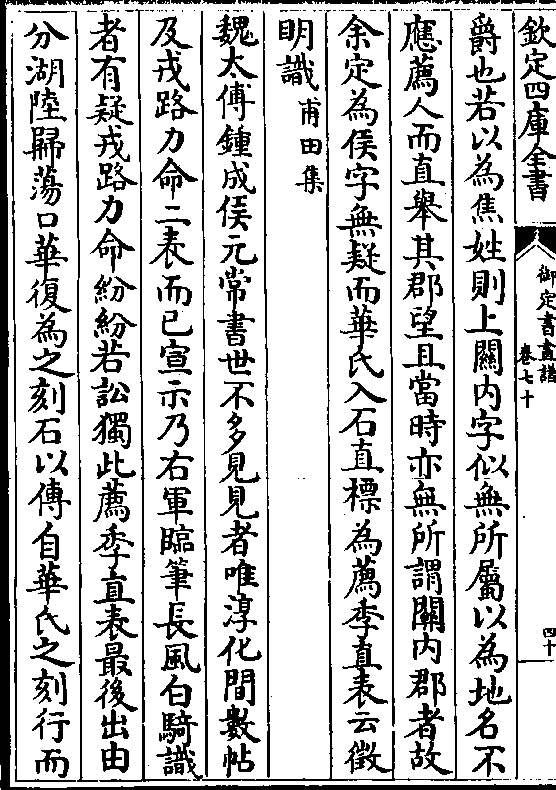 欽定四庫全書
御定書畫譜
卷七十
四十
爵也若以為焦姓則上關内字似無所屬以為地名不
應薦人而直舉其郡望且當時亦無所謂關内郡者故
余定為侯字無疑而華氏入石直標為薦季直表云徵
明識甫田集
魏太傅鍾成侯元常書世不多見見者唯淳化間數帖
及戎路力命二表而已宣示乃右軍臨筆長風白騎識
者有疑戎路力命紛紛若訟獨此薦季直表最後出由
分湖陸歸蕩口華復為之刻石以傳自華氏之刻行而